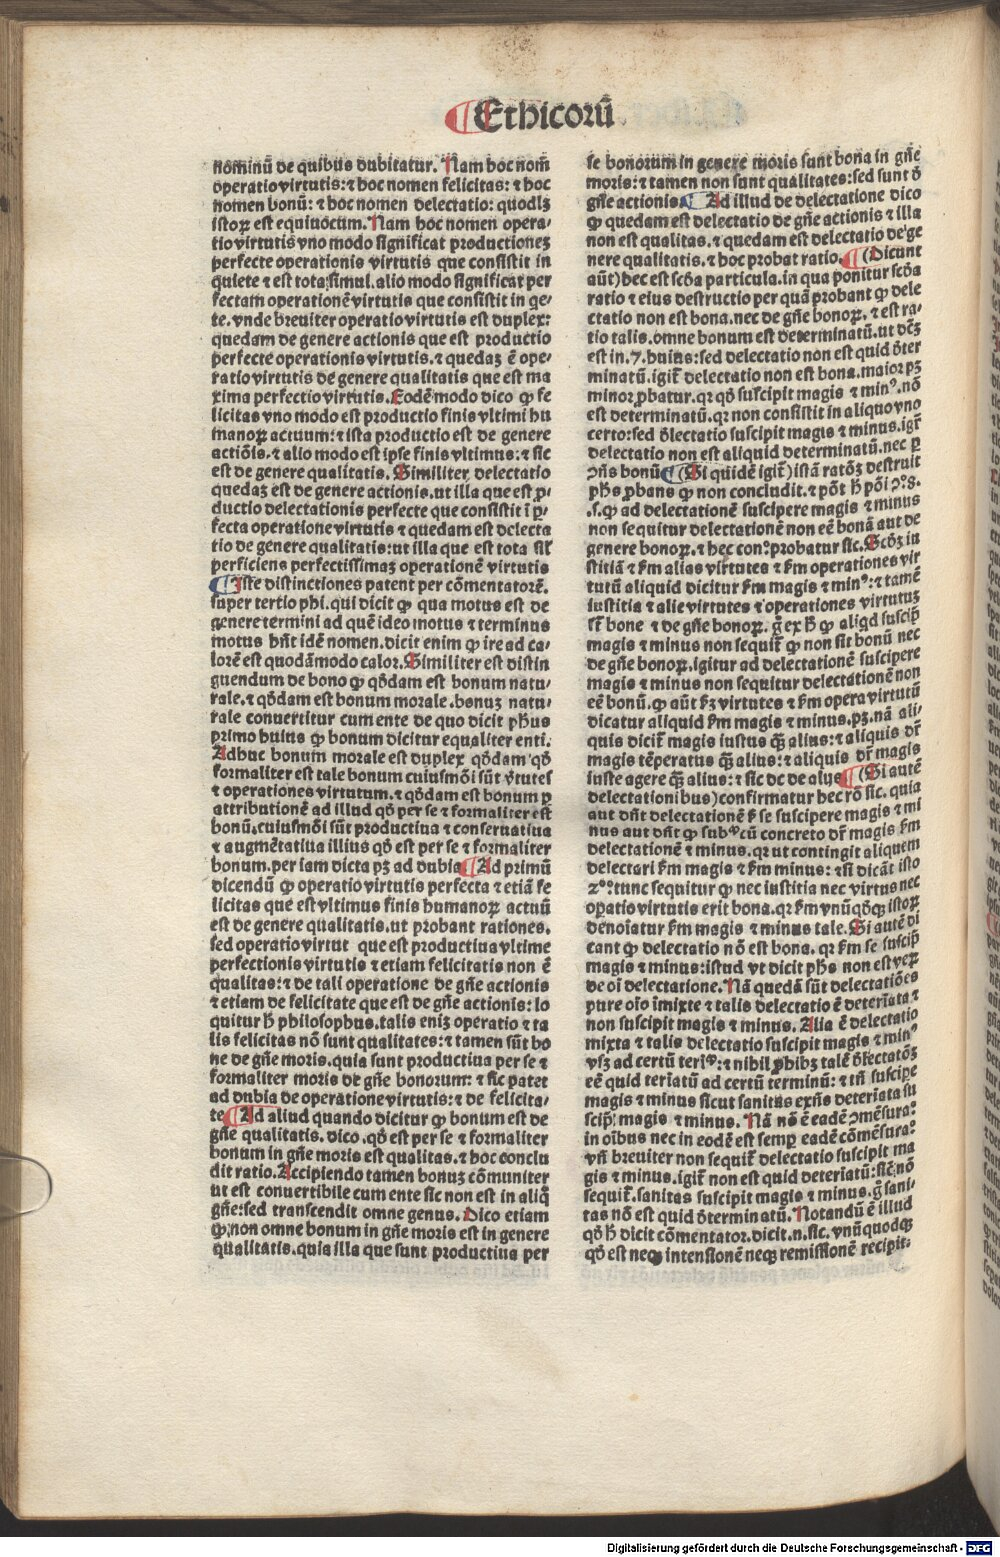 Ethicoꝝ̄
nominū de quibus dubitatur. Nam hoc nom̄
operatio virtutis: ⁊ hoc nomen felicitas: ⁊ hoc
nomen bonū: ⁊ hoc nomen delectatio: quodlꝫ
istoꝝ est equiuocum. Nam hoc nomen opera⸗
tio virtutis vno modo significat productionez
perfecte operationis virtutis que consistit in
quiete ⁊ est tota simul. alio modo significat per
fectam operationē virtutis que consistit in qe⸗
te. vnde breuiter operatio virtutis est duplex:
quedam de genere actionis que est productio
perfecte operationis virtutis. ⁊ quedaꝫ ē ope⸗
ratio virtutis de genere qualitatis que est ma
xima perfectio virtutis. Eodē modo dico ꝙ fe
licitas vno modo est productio finis vltimi hu
manoꝝ actuum: ⁊ ista productio est de genere
actiōis. ⁊ alio modo est ipse finis vltimus: ⁊ sic
est de genere qualitatis. Similiter delectatio
quedaꝫ est de genere actionis. ut illa que est ꝓ⸗
ductio delectationis perfecte que consistit ī ꝑ⸗
fecta operatione virtutis ⁊ quedam est delecta
tio de genere qualitatis: ut illa que est tota sil̄
perficiens perfectissimaꝫ operationē virtutis
Iste distinctiones patent per cōmentatorē.
super tertio phi. qui dicit ꝙ qua motus est de
genere termini ad quē ideo motus ⁊ terminus
motus hn̄t idē nomen. dicit enim ꝙ ire ad ca⸗
lorē est quodāmodo calor. Similiter est distin
guendum de bono ꝙ qd̄dam est bonum natu⸗
rale. ⁊ qd̄dam est bonum morale. bonuꝫ natu⸗
rale conuertitur cum ente de quo dicit ph̄us
primo huius ꝙ bonum dicitur equaliter enti.
Adhuc bonum morale est duplex qd̄dam qd̄
formaliter est tale bonum cuiusmōi sūt v̄tutes
⁊ operationes virtutum. ⁊ qd̄dam est bonum ꝑ
attributionē ad illud qd̄ per se ⁊ formaliter est
bonū. cuiusmōi sūt productiua ⁊ conseruatiua
⁊ augmētatiua illius qd̄ est per se ⁊ formaliter
bonum. per iam dicta pꝫ ad dubia Ad primū
dicendū ꝙ operatio virtutis perfecta ⁊ etiā fe
licitas que est vltimus finis humanoꝝ actuū
est de genere qualitatis. ut probant rationes.
sed operatio virtut que est productiua vltime
perfectionis virtutis ⁊ etiam felicitatis non ē
qualitas: ⁊ de tali operatione de gn̄e actionis
⁊ etiam de felicitate que est de gn̄e actionis: lo
quitur h̄ philosophus. talis eniꝫ operatio ⁊ ta
lis felicitas nō sunt qualitates: ⁊ tamen sūt bo
ne de gn̄e moris. quia sunt productiua per se ⁊
formaliter moris de gn̄e bonorum: ⁊ sic patet
ad dubia de operatione virtutis: ⁊ de felicita⸗
te Ad aliud quando dicitur ꝙ bonum est de
gn̄e qualitatis. dico. qd̄ est per se ⁊ formaliter
bonum in gn̄e moris est qualitas. ⁊ hoc conclu
dit ratio. Accipiendo tamen bonuꝫ cōmuniter
ut est conuertibile cum ente sic non est in aliq̄
gn̄e: sed transcendit omne genus. Dico etiam
ꝙ non omne bonum in gn̄e moris est in genere
qualitatis. quia illa que sunt productiua per
se bonorum in genere moris sunt bona in gn̄e
moris: ⁊ tamen non sunt qualitates: sed sunt d̄
gn̄e actionis Ad illud de delectatione dico
ꝙ quedam est delectatio de gn̄e actionis ⁊ illa
non est qualitas. ⁊ quedam est delectatio de ge
nere qualitatis. ⁊ hoc probat ratio. (Dicunt
aūt) hec est scd̄a particula. in qua ponitur scd̄a
ratio ⁊ eius destructio per quā probant ꝙ dele
ctatio non est bona. nec de gn̄e bonoꝝ. ⁊ est ra⸗
tio talis. omne bonum est determinatū. ut dc̄ꝫ
est in .7. huius: sed delectatio non est quid d̄ter
minatū. igit̄ delectatio non est bona. maior pꝫ
minor ꝓbatur. qꝛ qd̄ suscipit magis ⁊ minꝰ. nō
est determinatū. qꝛ non consistit in aliquo vno
certo: sed d̄lectatio suscipit magis ⁊ minus. igit̄
delectatio non est aliquid determinatū. nec ꝑ
ꝯn̄s bonū (Si quidē igit̄) istā ratōꝫ destruit
ph̄s ꝓbans ꝙ non concludit. ⁊ pōt h̄ pōi ꝯ°.8.
.s. ꝙ ad delectationē suscipere magis ⁊ minus
non sequitur delectationē non eē bonā aut de
genere bonoꝝ. ⁊ hec con° probatur sic. Scd̄ꝫ iu
stitiā ⁊ ẜm alias virtutes ⁊ ẜm operationes vir
tutū aliquid dicitur ẜm magis ⁊ minꝰ: ⁊ tamē
iustitia ⁊ alie virtutes ⁊ operationes virtutuꝫ
sūt bone ⁊ de gn̄e bonoꝝ. g̊ ex h̄ ꝙ aliqd suscip̄
magis ⁊ minus non sequit̄ ꝙ non sit bonū nec
de gn̄e bonoꝝ. igitur ad delectationē suscipere
magis ⁊ minus non sequitur delectationē non
eē bonū. ꝙ aūt ẜꝫ virtutes ⁊ ẜm opera virtutū
dicatur aliquid ẜm magis ⁊ minus. pꝫ. nā ali⸗
quis dicit̄ magis iustus qꝫ̄ alius: ⁊ aliquis dr̄
magis tēperatus qꝫ̄ alius: ⁊ aliquis dr̄ magis
iuste agere qꝫ̄ alius: ⁊ sic de de alijs (Si autē
delectationibus) confirmatur hec rō sic. quia
aut dn̄t delectationē ẜ se suscipere magis ⁊ mi
nus aut dn̄t ꝙ subᵒ cū concreto dr̄ magis ẜm
delectationē ⁊ minus. qꝛ ut contingit aliquem
delectari ẜm magis ⁊ ẜm minus: ⁊ si dicāt isto
2°: tunc sequitur ꝙ nec iustitia nec virtus nec
oꝑatio virtutis erit bona. qꝛ ẜm vnūqd̄qꝫ istoꝝ
denoīatur ẜm magis ⁊ minus tale. Si autē di
cant ꝙ delectatio nō est bona. qꝛ ẜm se suscip̄
magis ⁊ minus: istud vt dicit ph̄s non est verꝝ
de oī delectatione. Nā quedā sūt delectatiōes
pure oīo īmixte ⁊ talis delectatio ē deteriata ⁊
non suscipit magis ⁊ minus. Alia ē delectatio
mixta ⁊ talis delectatio suscipit magis ⁊ minꝰ
vsꝫ ad certū teriᵒ: ⁊ nihil ꝓhibꝫ talē d̄lectatōꝫ
eē quid teriatū ad certū terminū: ⁊ tn̄ suscipe
magis ⁊ minus sicut sanitas exn̄s deteriata su
scip̄ magis ⁊ minus. Nā nō ē eadē ꝯmēsura°
in oībus nec in eodē est semꝑ eadē cōmēsura°
vn̄ breuiter non sequit̄ delectatio suscipit ma
gis ⁊ minus. igit̄ non est quid deteriatū: sic̄ nō
sequit̄. sanitas suscipit magis ⁊ minus. g̊ sani⸗
tas nō est quid d̄terminatū. Notandū ē illud
qd̄ h̄ dicit cōmentator. dicit .n. sic. vnūquodqꝫ
qd̄ est neqꝫ intensionē neqꝫ remissionē recipit⸗
Digitalisierung gefördert durch die Deutsche Forschungsgemeinschaft - DFG